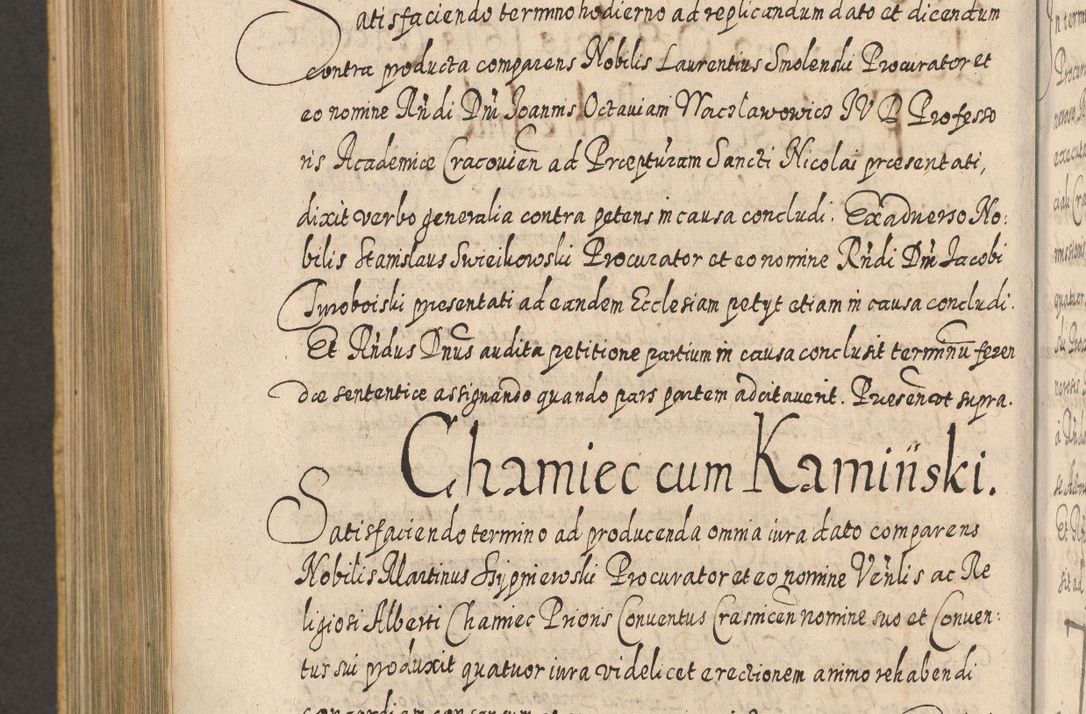 Satisfaciendo termino hodierno ad replicandum dato et dicendum
contra producta comparens Nobilis Laurentius Smolenski Procurator et
eo nomine Rńdi Dńi Joannis Octauiani Wacslawowics JVD Professo
ris Academiæ Cracouien̄ ad Præpturam Sancti Nicolai præsentati,
dixit verbo generalia contra petens in causa concludi. Ex aduerso No:
bilis Stanislaus Swieikowski Procurator et eo nomine Rńdi Dńi Jacobi
præsentati ad eandem Ecclesiam petyt etiam in causa concludi.
Et Rńdus Dnus audita petitione partium in causa conclusit terminū feren
dæ sententiæ assignando quando pars partem adcitauerit. Præsen̄ ut supra.
Chamiec cum Kamiński.
Satisfaciendo termino ad producenda omnia iura dato comparens
Nobilis Martinus Procurator et eo nomine Venlis ac Re
ligiosi Alberti Chamiec Prioris Conuentus Crasnicen̄ nomine suo et Conuen:
tus sui produxit quatuor iura videlicet erectionem animo rehabendi